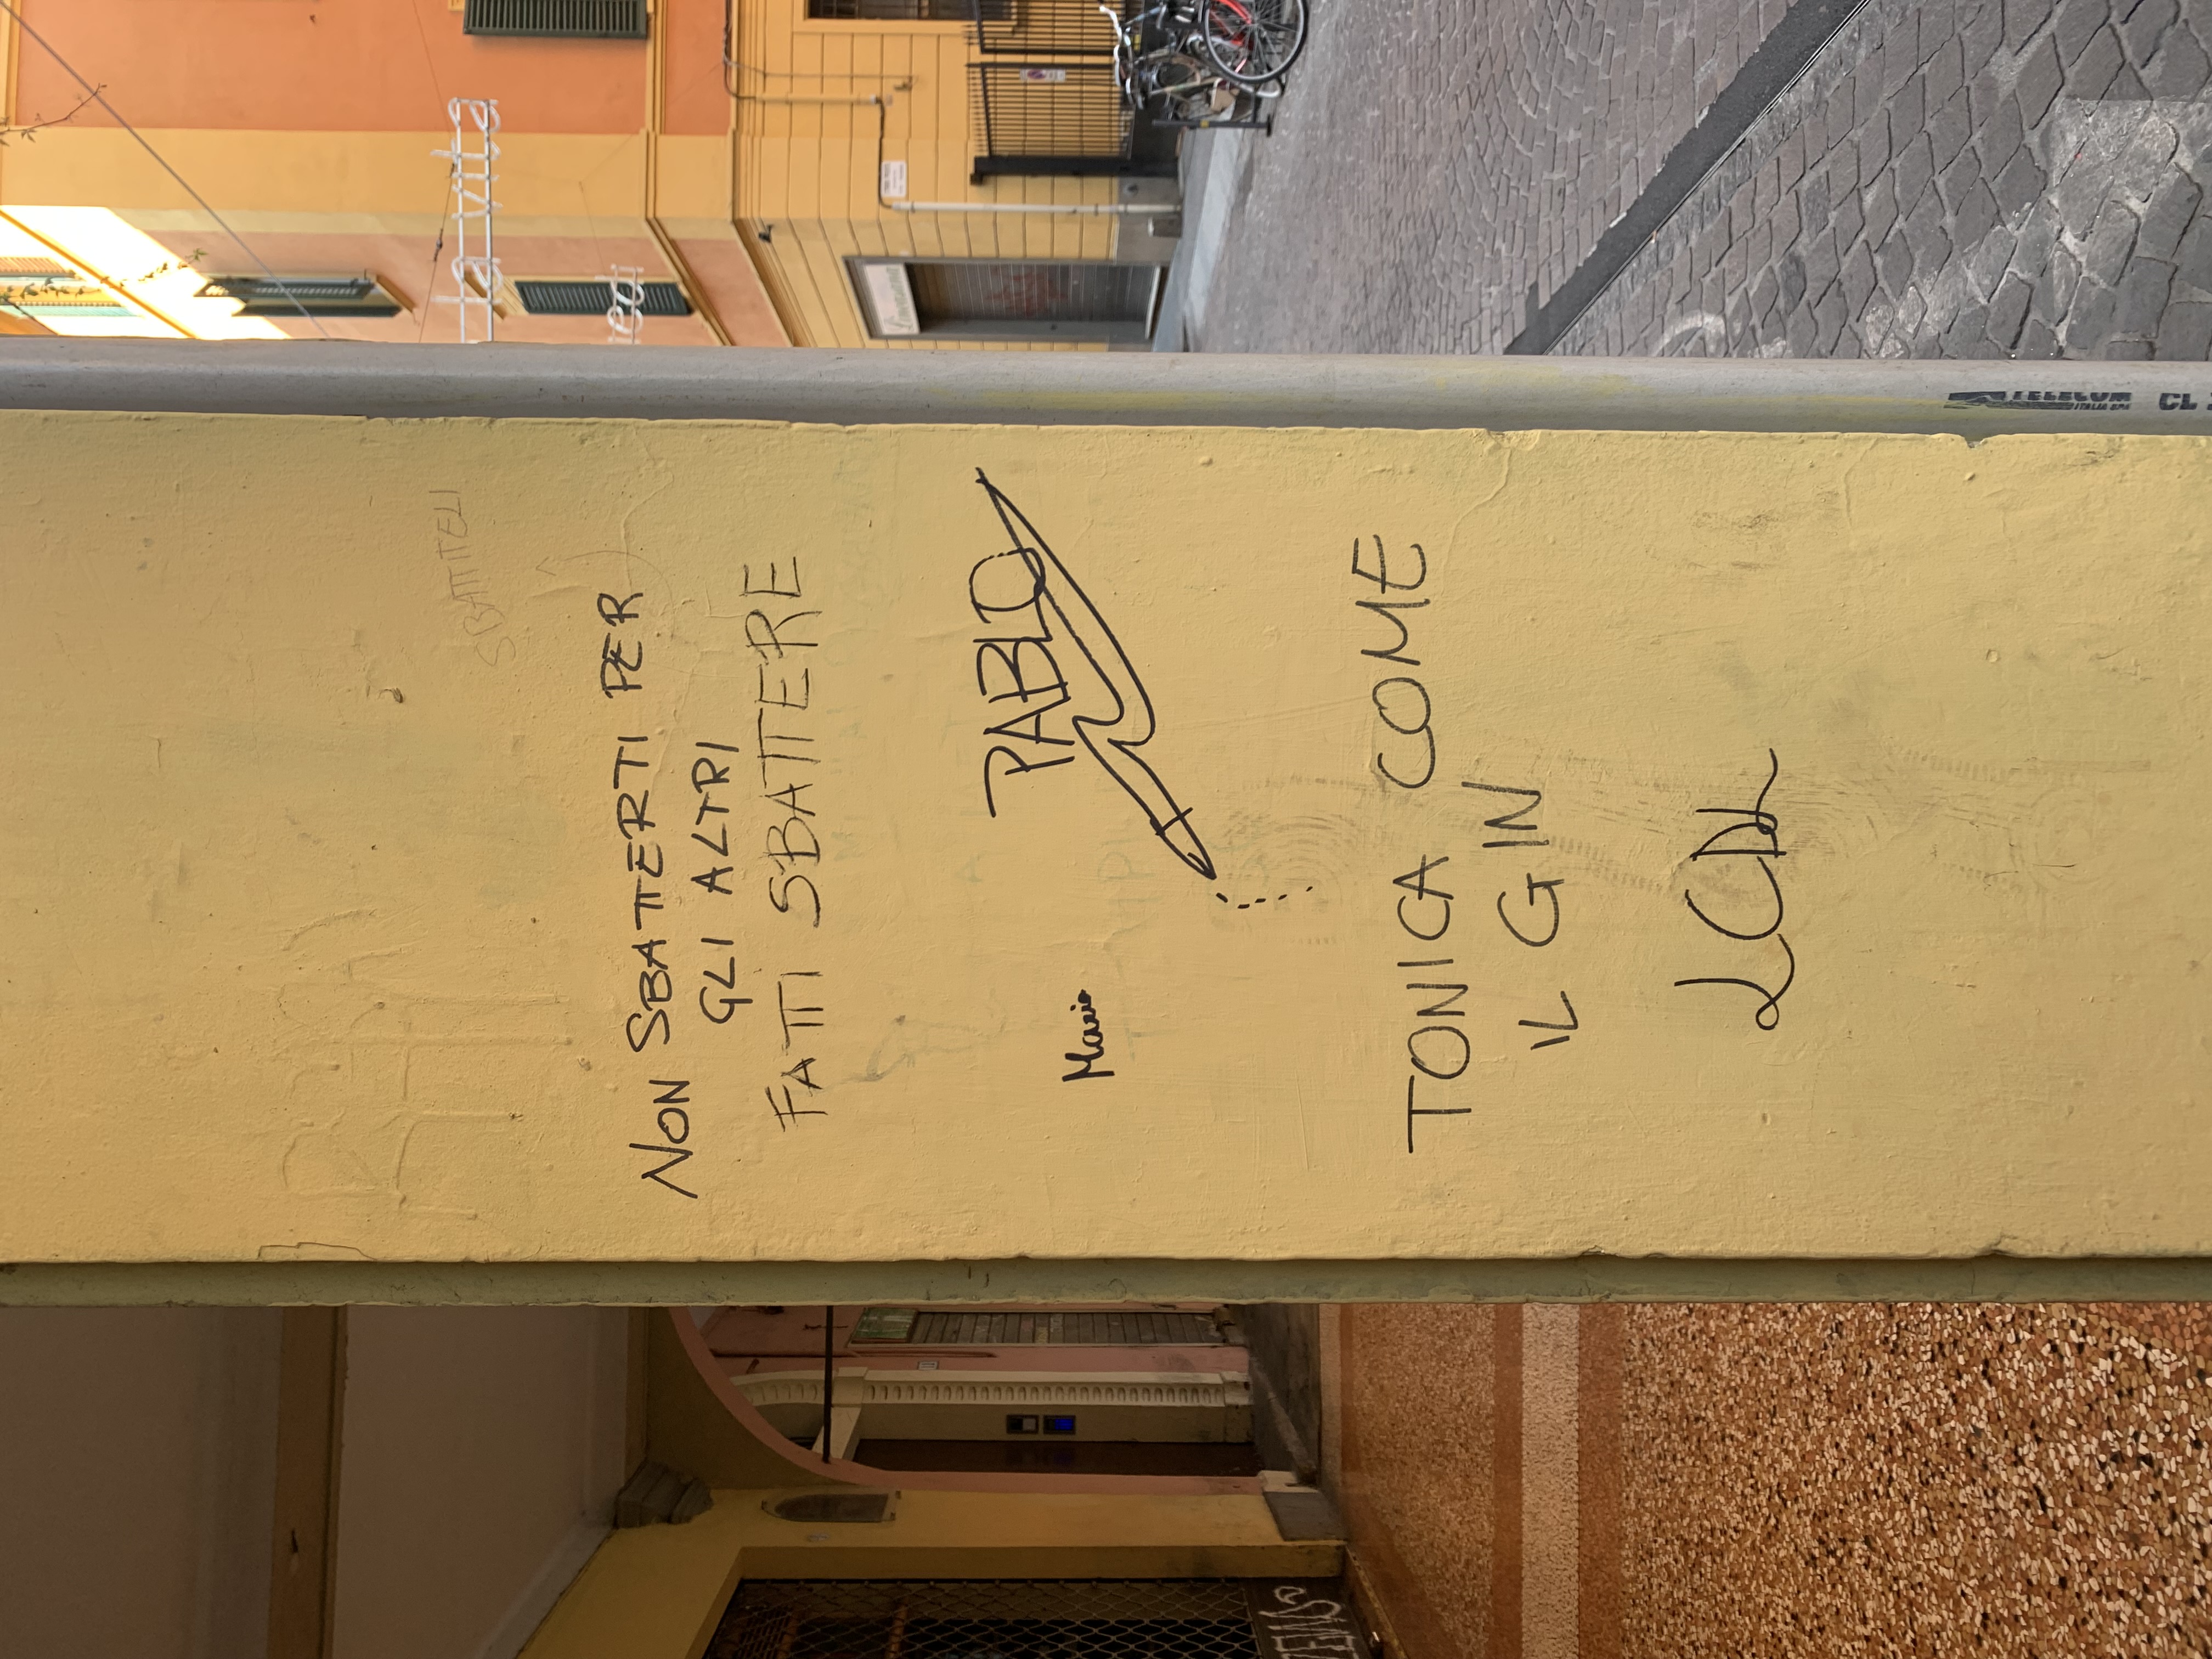 SBATTITELI
NON SBATTERTI PER
GLI ALTRI
FATTI SBATTERE
PABLO
Maria
TONICA COME
IL GIN
LCDL
la vita
iedi
TELECOM
CL